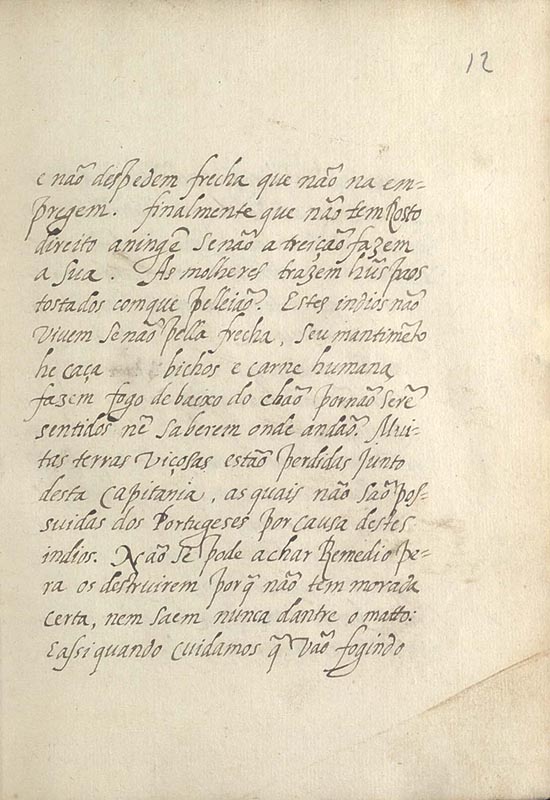 12
e não despedem frecha que não na em=
pregem. finalmente que não tem Rosto
direito aningẽ Senão atreição fazem
a Sua. As molheres trazem hũs paos
tostados comque pelleião. Estes indios não
vivem Senão pella frecha, Seu mantimẽto
he caça bichos e carne humana
fazem fogo debaixo do chão pornão Serẽ
sentidos nẽ Saberem onde andão. Mui-
tas terras viçosas estão perdidas Junto
desta Capitania, as quais não São pos-
suidas dos Portugeses por causa destes
indios. Não Se pode achar Remedio pe-
ra os destruirem porq̃ não tem morada
certa, nem saem nunca dantre o matto:
E assi quando cuidamos q̃ vão fogindo